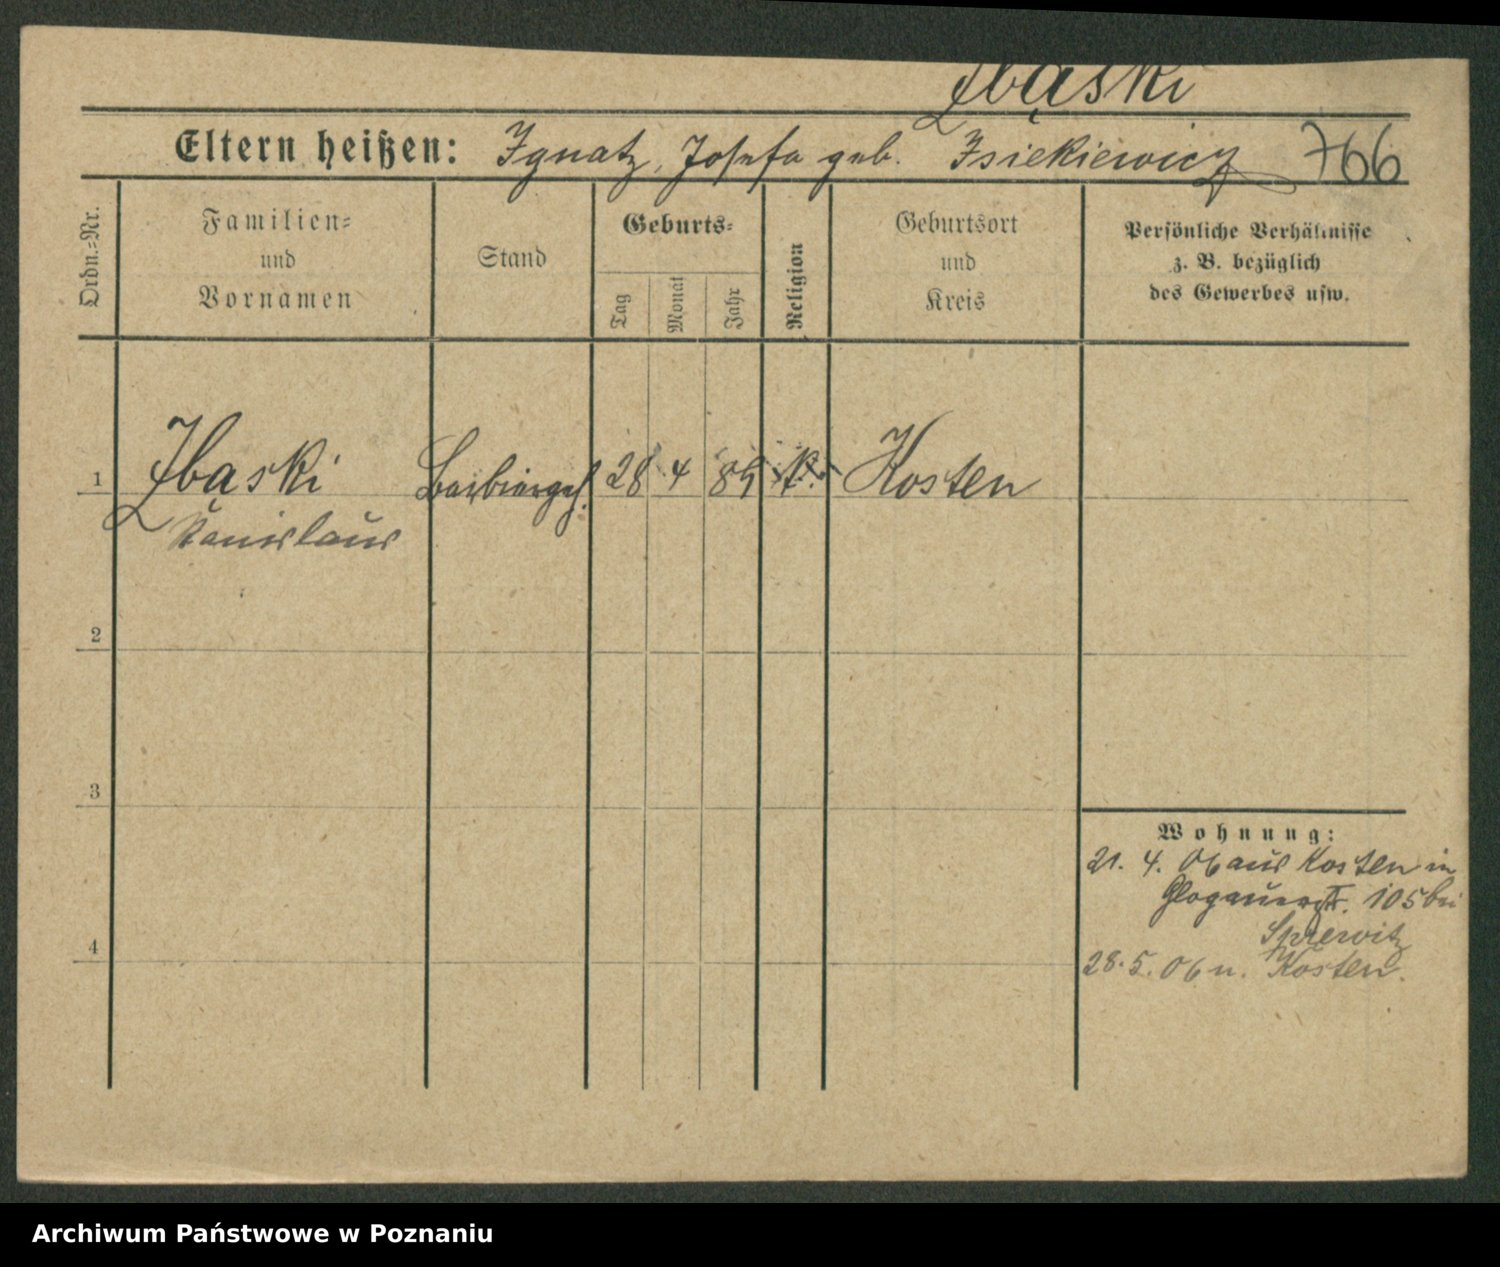 Zbąski
Eltern heißen: Ignatz, Josefa geb. Isiekiewicz 766
Ordn.=Nr.
Familien=
und
Vornamen
Stand
Geburts=
Tag
Monat
Jahr
Religion
Geburtsort
und
Kreis
Persönliche Verhältnisse
z. B. bezüglich
des Gewerbes usw.
1 Zbąski Barbiergeh. 28 4 85 k. Kosten
Stanislaus
2
3
4
Wohnung:
21. 4. 06 aus Kosten in
Glogauerstr. 105 bei
28. 5. 06 n. Kosten.
Archiwum Państwowe w Poznaniu